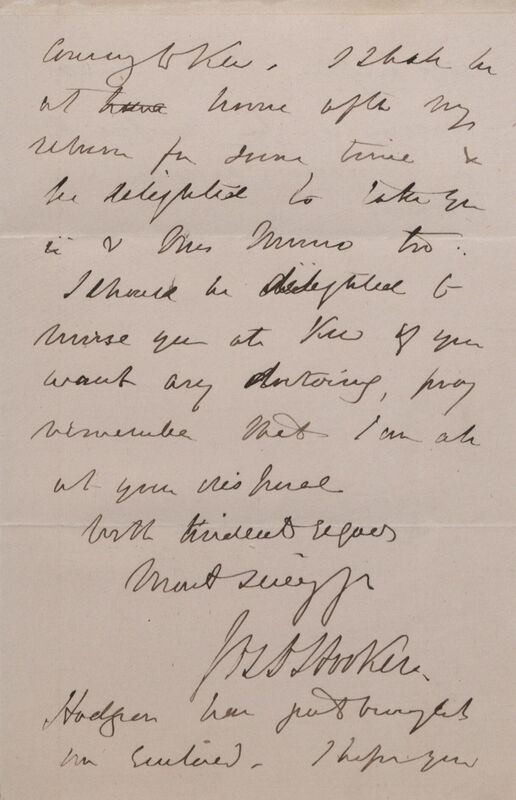 coming to Kew. I shall be
at home after my
return for some time &
be delighted to take you
in & Mrs Munro too.
I should be delighted to
nurse you at Kew & if you
want any doctoring, pray
remember that I am at
at your disposal
With kindest regards
Most sincerely yr
Jos D Hooker.
Hodgson has just brought
in enclosed. I hope you